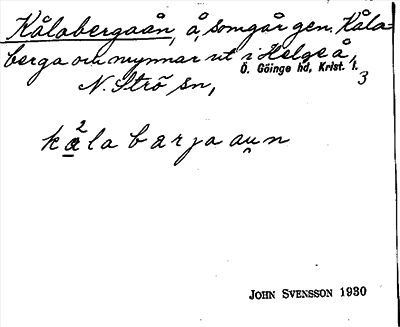 Kålabergaån, å, som går gen. Kåla-
berga och mynnar ut i Helge å,
Ö. Göinge hd, Krist. l.
N. Strö sn, 3
2
kalabarjaaun
JOHN SVENSSON 1930